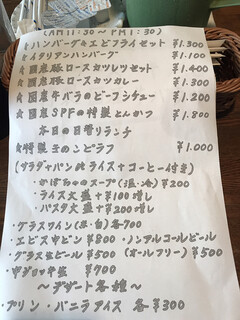 (AM11:30 ~ PM1:30)
☆ハンバーグ&エビフライセット ¥1,300
☆イタリアンハンバーグ ¥1,100
☆国産豚ロースカツレツセット ¥1,400
☆国産豚ロースカツカレー ¥1,300
☆国産牛バラのビーフシチュー ¥1,200
☆国産SPFの特製とんかつ ¥1,800
本日の日替りランチ
☆特製 ¥1,000
(サラダ・パンorライス+コーヒー付き)
・かぼちゃのスープ(温・冷) ¥200
・ライス大盛+¥100増し
・パスタ大盛+¥200増し
・グラスワイン(赤・白)各700
・エビス中ビン ¥800・ノンアルコールビール
・グラス生ビール ¥500 (オールフリー) ¥500
・中ジョッキ生 ¥700
~デザート各種~
・プリン・バニラアイス 各¥300